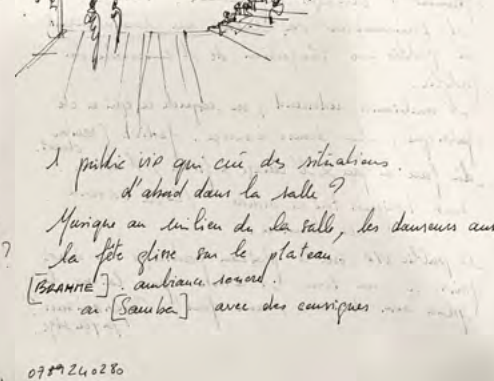 1 public VIP qui crée des situations.
d'abord dans la salle ?
Musique au milieu de la salle, les danseurs aus
? la fête glisse sur le plateau
[BRAHME]. ambiance sonore.
ou [Samba] avec des consignes.
0789240280